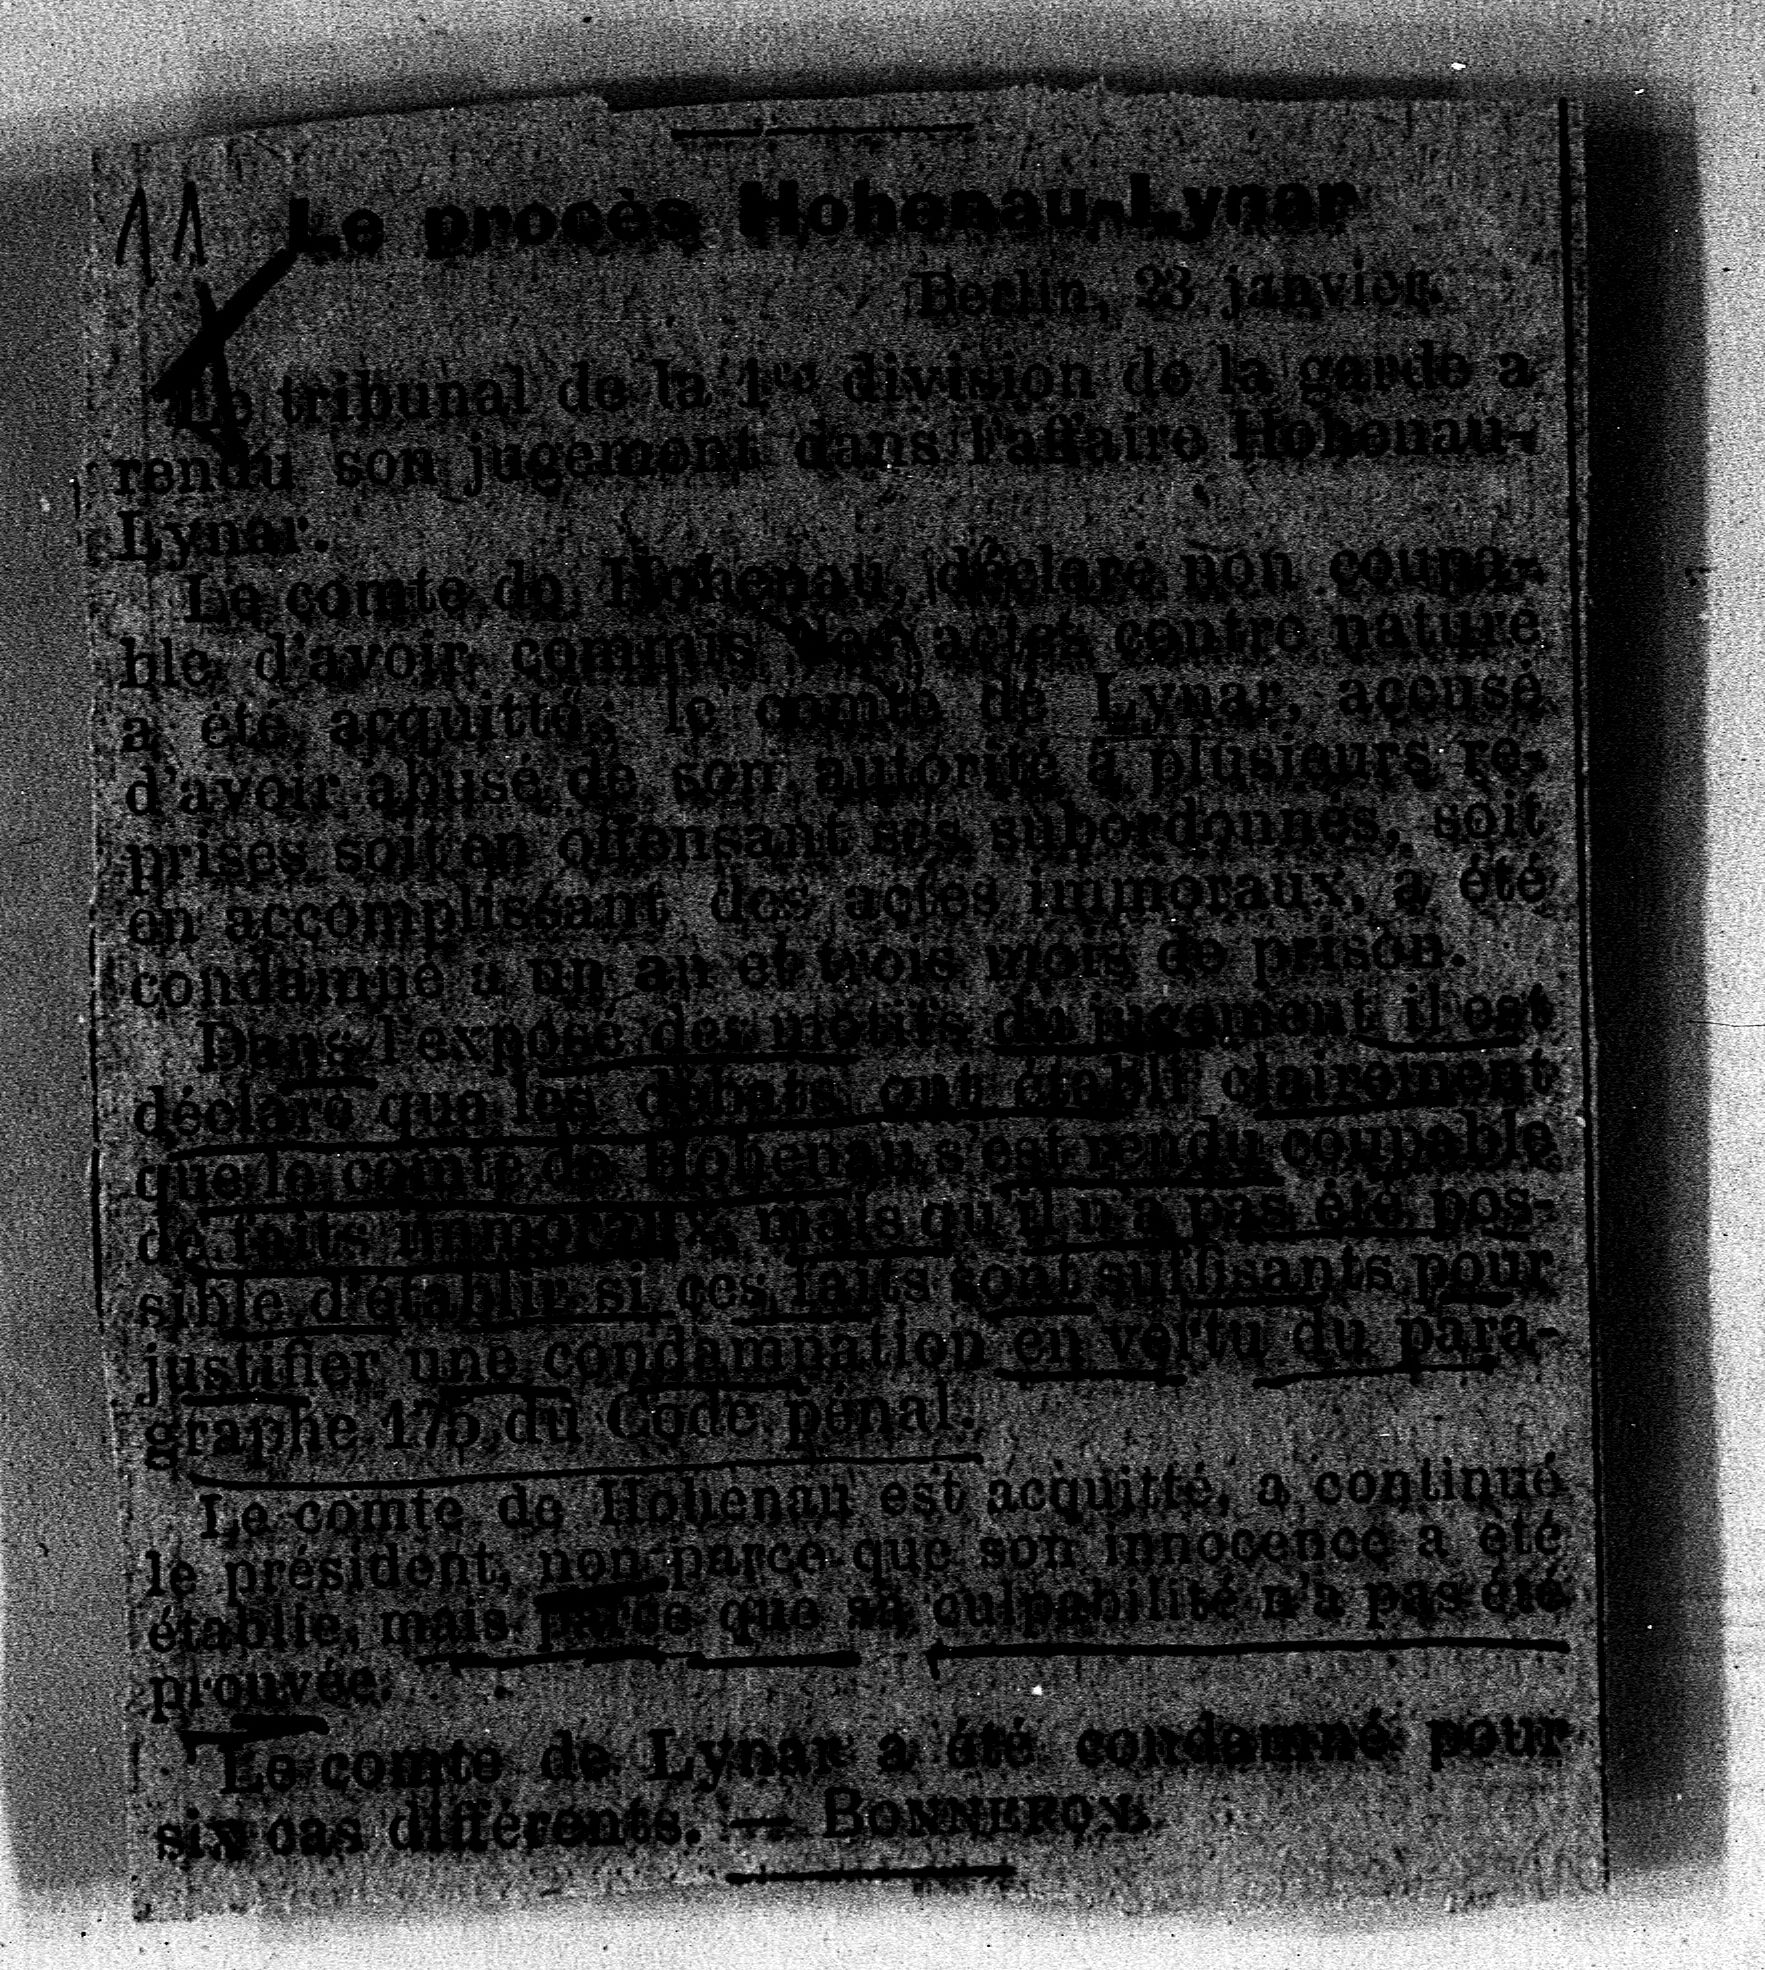 11
Le procès Hohenau-Lynar
Berlin, 23 janvier.
Le tribunal de la 1re division de la garde a
rendu son jugement dans l'affaire Hohenau-
Lynar.
Le comte de Hohenau, déclaré non coupa-
ble d'avoir commis des actes contre nature
a été acquitté; le comte de Lynar, accusé
d'avoir abusé de son autorité à plusieurs re-
prises soit en offensant ses subordonnés, soit
en accomplissant des actes immoraux, a été
condamné à un an et trois mois de prison.
Dans l'exposé des motifs du jugement il est
déclaré que les débats ont établi clairement
que le comte de Hohenau s'est rendu coupable
de faits immoraux, mais qu'il n'a pas été pos-
sible d'établir si ces faits sont suffisants pour
justifier une condamnation en vertu du para-
graphe 175 du Code pénal.
Le comte de Hohenau est acquitté, a continué
le président, non parce que son innocence a été
établie, mais parce que sa culpabilité n'a pas été
prouvée.
Le comte de Lynar a été condamné pour
six cas différents. — BONNERON.